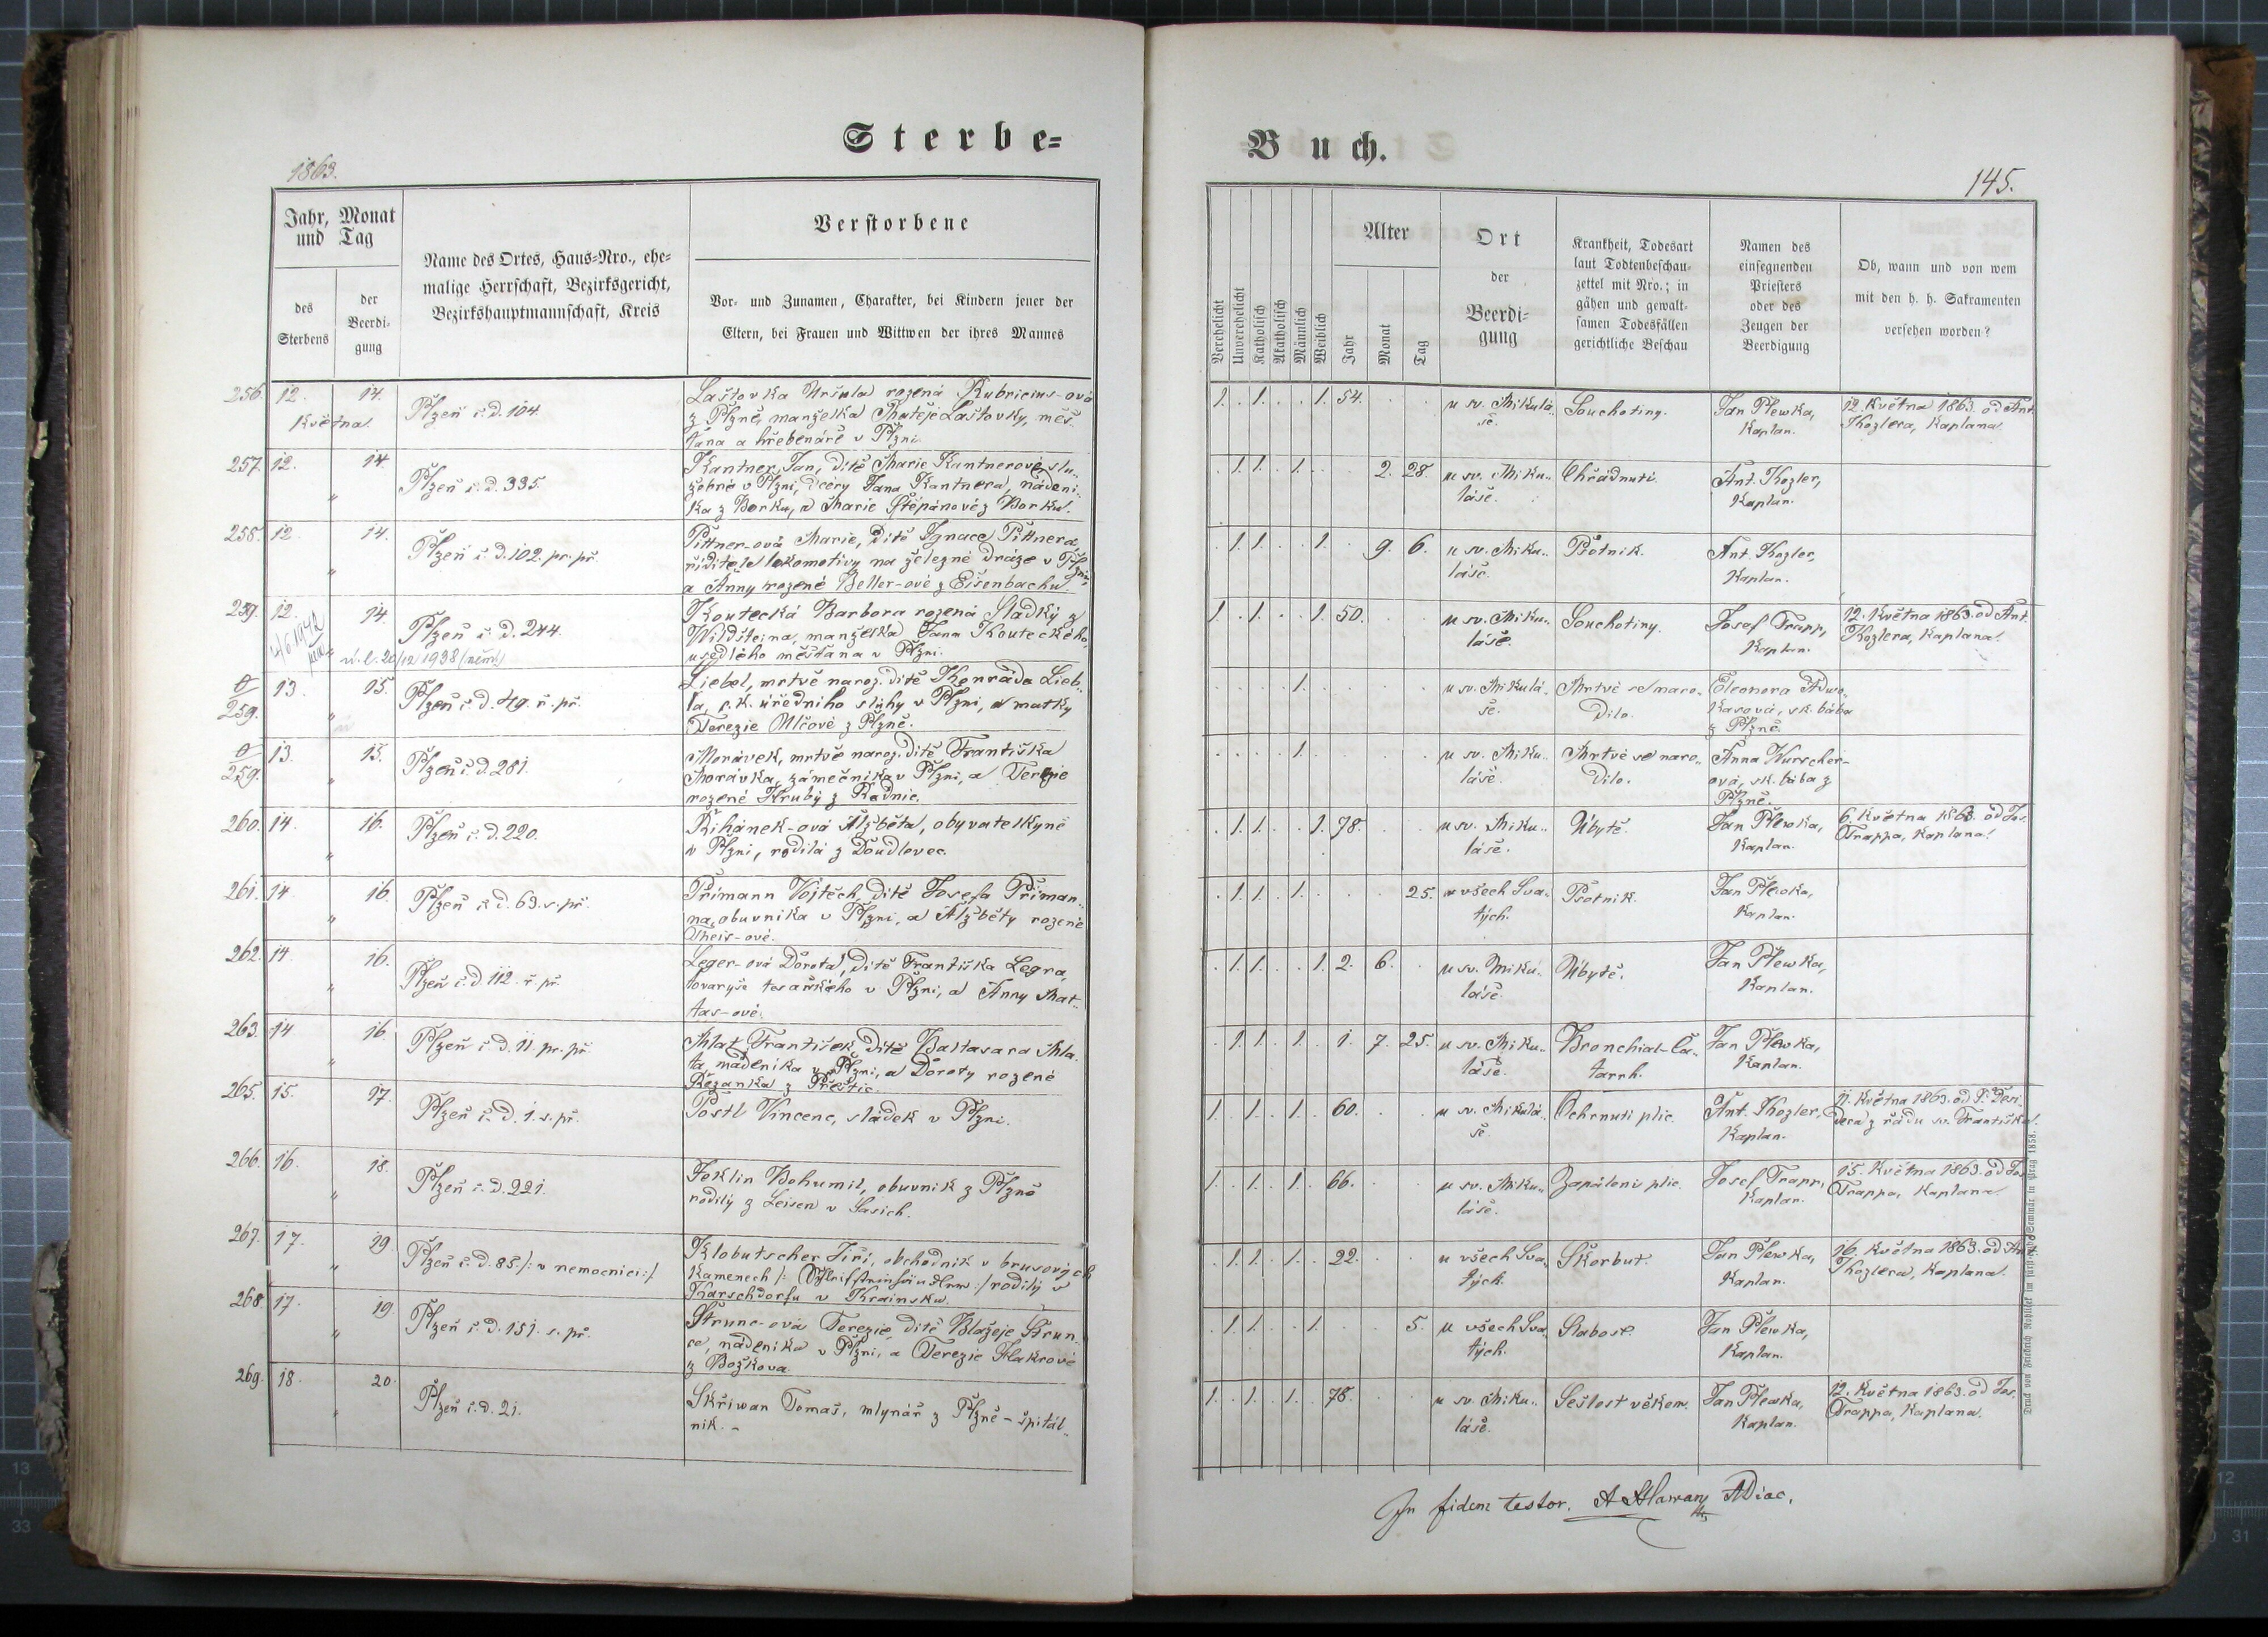 Sterbe=
1863.
Jahr, Monat
und Tag
des
Sterbens
der
Beerdi-
gung
Name des Ortes, Haus=Nro., ehe=
malige Herrschaft, Bezirksgericht,
Bezirkshauptmannschaft, Kreis
Verstorbene
Vor- und Zunamen, Charakter, bei Kindern jener der
Eltern, bei Frauen und Wittwen der ihres Mannes
256. 12. 14. Plzeň č. d. 104. Laštovka Uršula rozená Rubricius-ová
Května z Plzně, manželka Matěje Laštovky, měš-
ťana a hřebenáře v Plzni.
257. 12. 14. Plzeň č. d. 335. Kantner Jan, dítě Marie Kantnerové, slu-
" žebné v Plzni, dcery Jana Kantnera, nádeni-
ka z Borku, a Marie Štěpánové z Borku.
258. 12. 14. Plzeň č. d. 102. pr. př. Pittner-ová Marie, dítě Ignace Pittnera,
" řiditele lokomotivy na železné dráze v Plzni,
a Anny rozené Beller-ové z Eisenbachu.
259. 12. 14. Plzeň č. d. 244. Koutecká Barbora rozená Sladký z
4/6 1942 Wildšteina, manželka Jana Kouteckého,
20/12 1938 (něm.) usedlého měšťana v Plzni.
0/259. 13. 15. Plzeň č. d. 49. ř. př. Liebel, mrtvě naroz. dítě Konráda Lieb-
" la, c. k. úředního sluhy v Plzni, a matky
Terezie Ulčové z Plzně.
0/259. 13. 15. Plzeň č. d. 281. Morávek, mrtvě naroz. dítě Františka
" Morávka, zámečníka v Plzni, a Terezie
rozené Hrubý z Radnic.
260. 14. 16. Plzeň č. d. 220. Řihánek-ová Alžběta, obyvatelkyně
" v Plzni, rodilá z Doudlovec.
261. 14. 16. Plzeň č. d. 63. s. př. Přimann Vojtěch, dítě Josefa Přiman-
" na, obuvníka v Plzni, a Alžběty rozené
Theis-ové.
262. 14. 16. Plzeň č. d. 112. ř. př. Leger-ová Dorota, dítě Františka Legra,
" tovaryše tesařského v Plzni, a Anny Mat-
tas-ové.
263. 14. 16. Plzeň č. d. 11. pr. př. Mlat František, dítě Baltasara Mla-
" ta, nádeníka v Plzni, a Doroty rozené
Řezanka z Přeštic.
265. 15. 17. Plzeň č. d. 1. s. př. Postl Vincenc, sládek v Plzni.
266. 16. 18. Plzeň č. d. 221. Jeklin Bohumil, obuvník z Plzně
" rodilý z Leisen v Sasích.
267. 17. 19. Plzeň č. d. 85 /: v nemocnici :/ Klobutscher Jiří, obchodník v brusových
" kamenech /: :/ rodilý v
Karschdorfu v Krainsku.
268. 17. 19. Plzeň č. d. 151. s. př. Štrunc-ová Terezie, dítě Blažeje Štrun-
" ce, nádeníka v Plzni, a Terezie Flakrové
z Božkova.
269. 18. 20. Plzeň č. d. 21. Skřiwan Tomaš, mlynář z Plzně - špitál-
" ník. -
Buch.
145.
Verehelicht
Unverehelicht
Katholisch
Akatholisch
Männlich
Weiblich
Alter
Jahr
Monat
Tag
Ort
der
Beerdi=
gung
Krankheit, Todesart
laut Todtenbeschau-
zettel mit Nro.; in
gähen und gewalt-
samen Todesfällen
gerichtliche Beschau
Namen des
einsegnenden
Priesters
oder des
Zeugen der
Beerdigung
Ob, wann und von wem
mit den h. h. Sakramenten
versehen worden?
1. . 1. . . 1. 54. . . u sv. Mikulá- Souchotiny. Jan Plewka, 12. Května 1863. od Ant.
še. Kaplan. Kozlera, Kaplana.
. 1. 1. . 1. . . 2. 28. u sv. Miku- Chřádnutí. Ant. Kozler,
láše. Kaplan.
. 1. 1. . . 1. . 9. 6. u sv. Miku- Psotník. Ant. Kozler,
láše. Kaplan.
1. . 1. . . 1. 50. . . u sv. Miku- Souchotiny. Josef Trapp, 12. Května 1863. od Ant.
láše. Kaplan. Kozlera, Kaplana.
. . . . 1. . . . . u sv. Mikulá- Mrtvé se naro- Eleonora Adwo-
še. dilo. kasová, sk. bába
z Plzně.
. . . . 1. . . . . u sv. Miku- Mrtvé se naro- Anna Wurscher-
láše. dilo. ová, sk. bába z
Plzně.
. 1. 1. . . 1. 78. . . u sv. Miku- Úbytě. Jan Plewka, 6. Května 1863. od Jos.
láše. Kaplan. Trappa, Kaplana.
. 1. 1. . 1. . . . 25. u všech Sva- Psotník. Jan Plewka,
tých. Kaplan.
. 1. 1. . . 1. 2. 6. . u sv. Miku- Úbytě. Jan Plewka,
láše. Kaplan.
. 1. 1. . 1. . 1. 7. 25. u sv. Miku- Bronchial-Ca- Jan Plewka,
láše. tarrh. Kaplan.
1. . 1. . 1. . 60. . . u sv. Mikulá- Ochrnutí plic. Ant. Kozler, 11. Května 1863. od P. Desi-
še. Kaplan. dera z řádu sv. Františka.
1. . 1. . 1. . 66. . . u sv. Miku- Zapálení plic. Josef Trapp, 15. Května 1863. od Jos.
láše. Kaplan. Trappa, Kaplana.
. 1. 1. . 1. . 22. . . u všech Sva- Škorbut. Jan Plewka, 16. Května 1863. od Ant.
tých. Kaplan. Kozlera, Kaplana.
. 1. 1. . . 1. . . 5. u všech Sva- Slabost. Jan Plewka,
tých. Kaplan.
1. . 1. . 1. . 78. . . u sv. Miku- Sešlost věkem. Jan Plewka, 12. Května 1863. od Jos.
láše. Kaplan. Trappa, Kaplana.
In fidem testor.